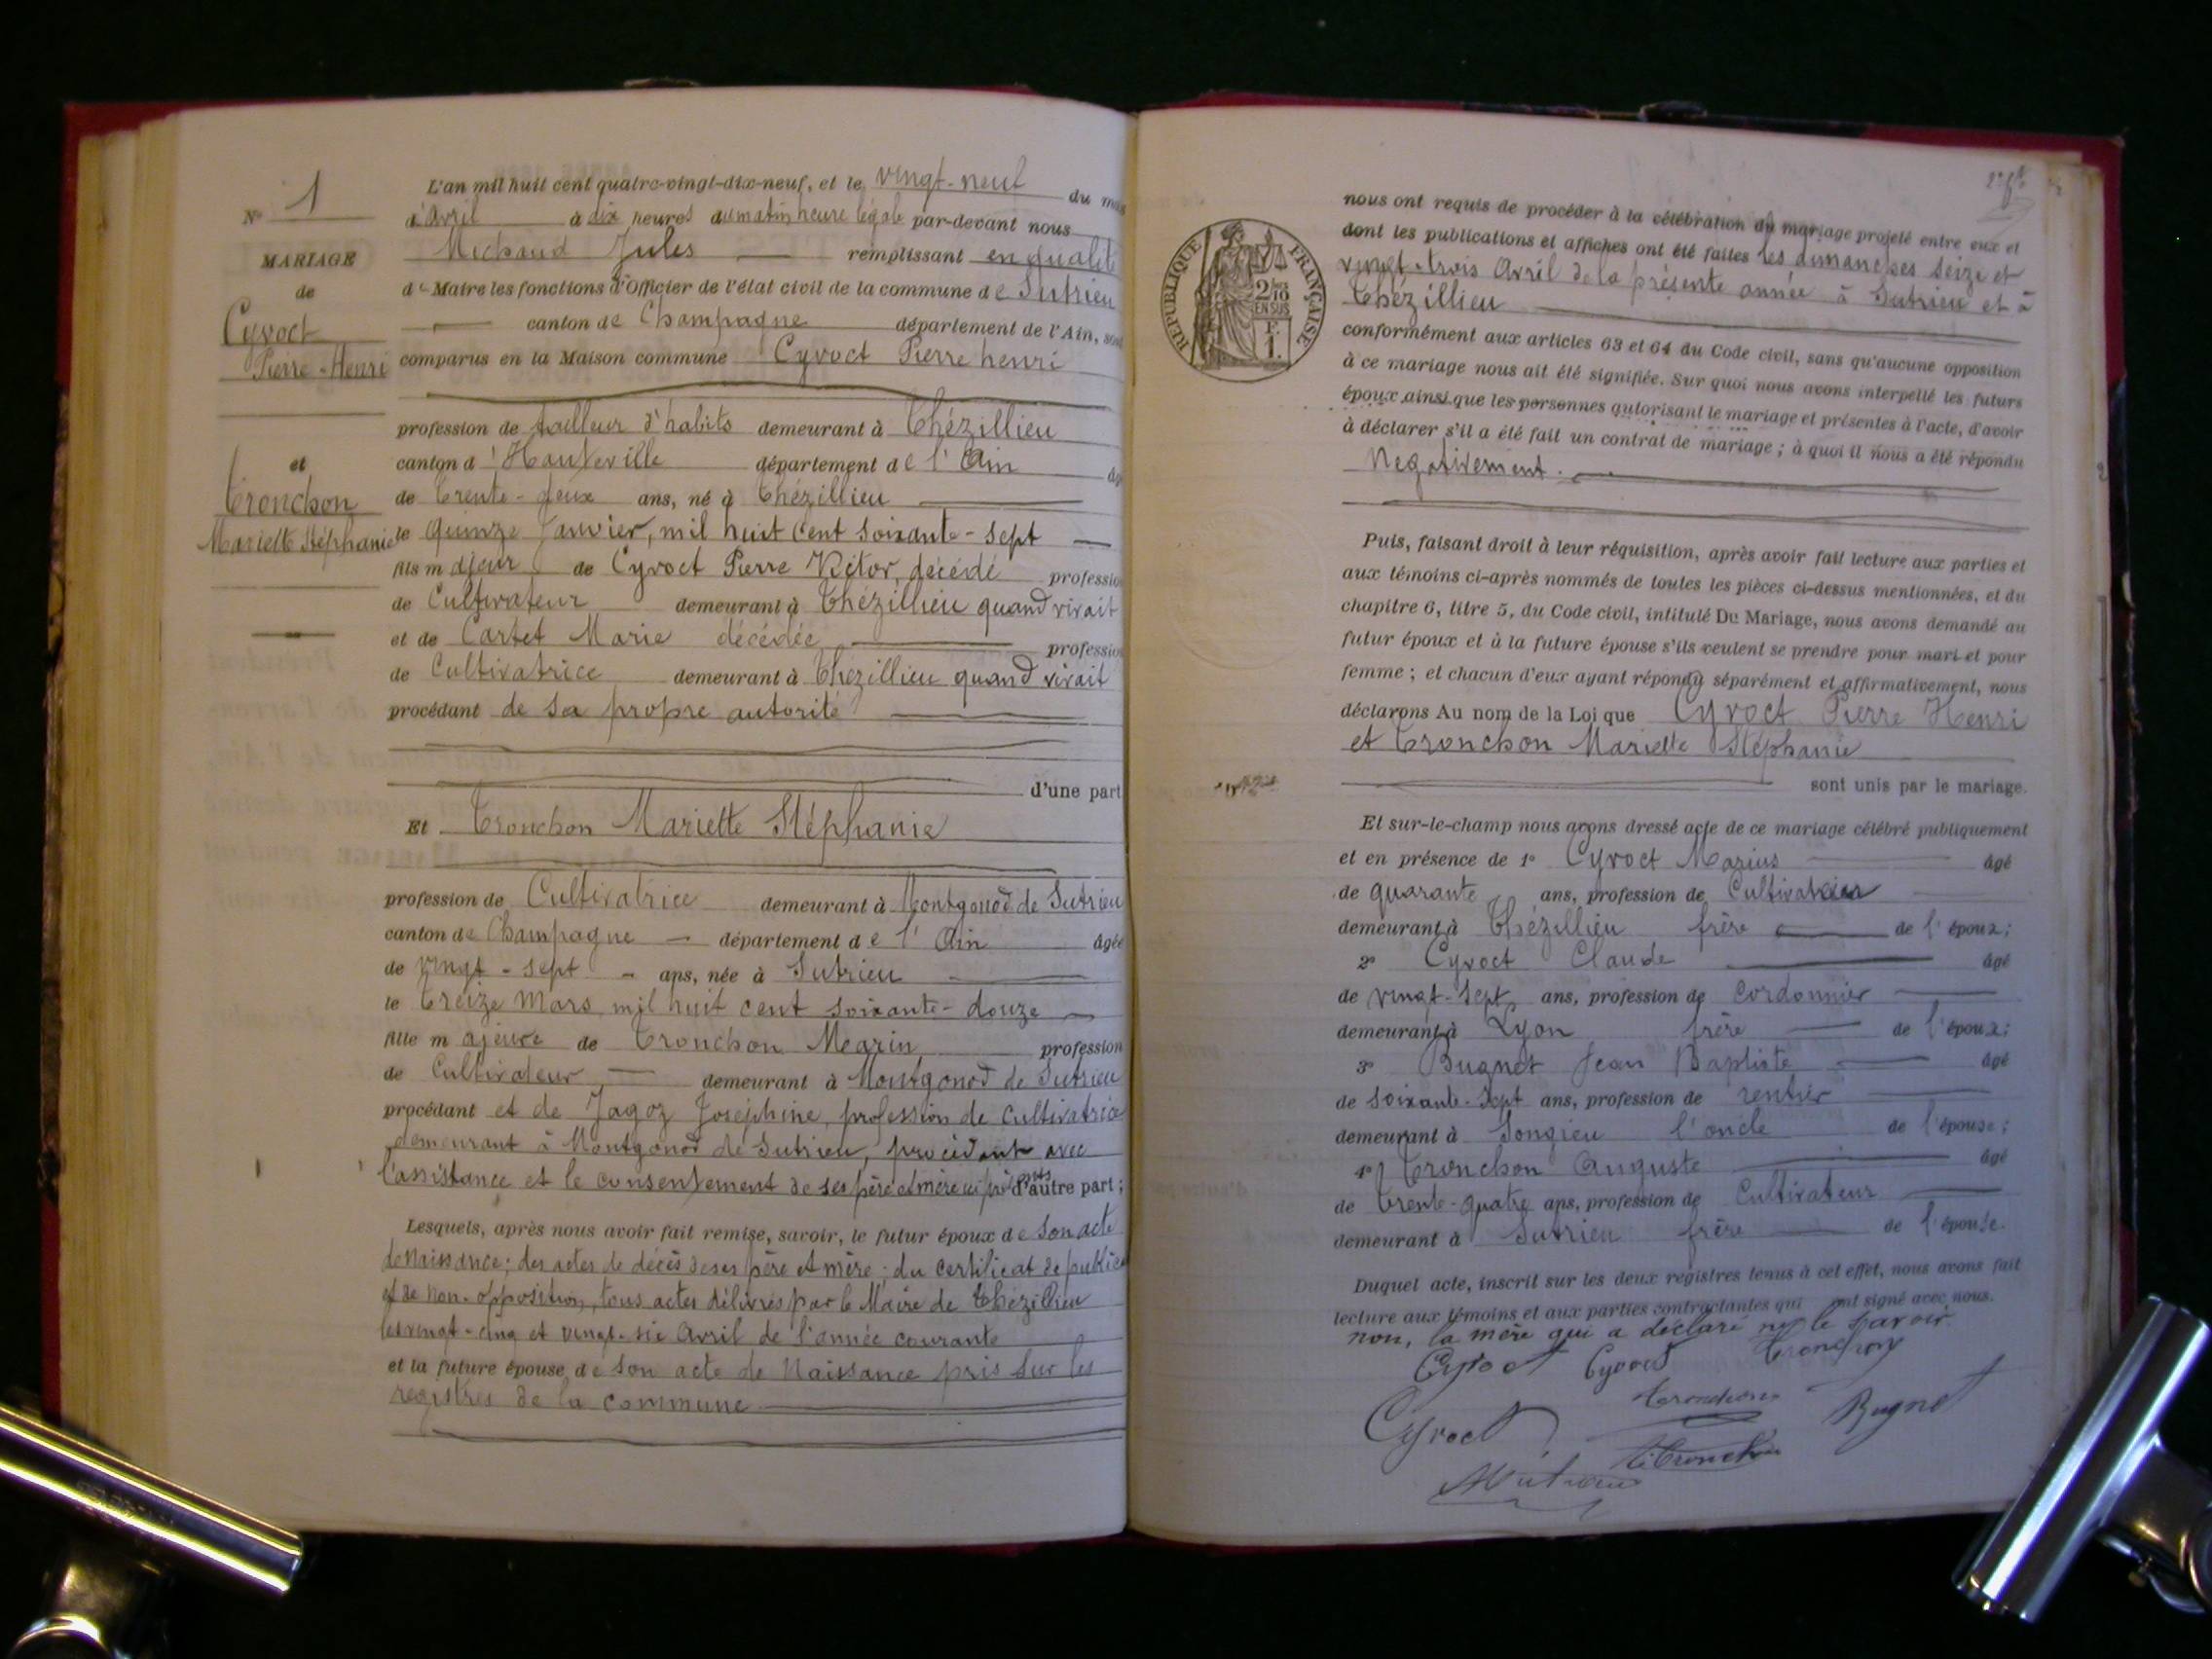 N° 1
MARIAGE
de
Cyvoct
Pierre-Henri
et
Tronchon
Mariette Stéphanie
L'an mil huit cent quatre-vingt-dix-neuf, et le vingt-neuf du mois
d'Avril à dix heures du matin heure légale par-devant nous
Michaud Jules remplissant en qualité
de Maire les fonctions d'Officier de l'état civil de la commune de Sutrieu
canton de Champagne département de l'Ain, sont
comparus en la Maison commune Cyvoct Pierre henri
profession de tailleur d'habits demeurant à Thézillieu
canton d'Hauteville département de l'Ain âgé
de trente-deux ans, né à Thézillieu
le quinze Janvier, mil huit cent soixante-sept
fils majeur de Cyvoct Pierre Victor, décédé profession
de Cultivateur demeurant à Thézillieu quand vivait
et de Cartet Marie décédée profession
de Cultivatrice demeurant à Thézillieu quand vivait
procédant de sa propre autorité
d'une part
Et Tronchon Mariette Stéphanie
profession de Cultivatrice demeurant à Montgonod de Sutrieu
canton de Champagne département de l'Ain âgée
de vingt-sept ans, née à Sutrieu
le treize Mars mil huit cent soixante-douze
fille majeure de Tronchon Marin profession
de Cultivateur demeurant à Montgonod de Sutrieu
procédant et de Jagoz Joséphine, profession de cultivatrice
demeurant à Montgonod de Sutrieu, procédant avec
l'assistance et le consentement de ses père et mère ici présents d'autre part ;
Lesquels, après nous avoir fait remise, savoir, le futur époux de son acte
de Naissance ; des actes de décès de ses père et mère ; du certificat de public
et de non-opposition, tous actes délivrés par le Maire de Thézillieu
les vingt-cinq et vingt-six Avril de l'année courante
et la future épouse de son acte de Naissance pris sur les
registres de la commune
nous ont requis de procéder à la célébration du mariage projeté entre eux et
dont les publications et affiches ont été faites les dimanches seize et
vingt-trois Avril de la présente année à Sutrieu et à
Thézillieu
RÉPUBLIQUE FRANÇAISE
2/10 EN SUS
F. 1.
conformément aux articles 63 et 64 du Code civil, sans qu'aucune opposition
à ce mariage nous ait été signifiée. Sur quoi nous avons interpellé les futurs
époux ainsi que les personnes autorisant le mariage et présentes à l'acte, d'avoir
à déclarer s'il a été fait un contrat de mariage ; à quoi il nous a été répondu
Negativement.
Puis, faisant droit à leur réquisition, après avoir fait lecture aux parties et
aux témoins ci-après nommés de toutes les pièces ci-dessus mentionnées, et du
chapitre 6, titre 5, du Code civil, intitulé Du Mariage, nous avons demandé au
futur époux et à la future épouse s'ils veulent se prendre pour mari et pour
femme ; et chacun d'eux ayant répondu séparément et affirmativement, nous
déclarons Au nom de la Loi que Cyvoct Pierre Henri
et Tronchon Mariette Stéphanie
sont unis par le mariage.
Et sur-le-champ nous avons dressé acte de ce mariage célébré publiquement
et en présence de 1° Cyvoct Marius âgé
de quarante ans, profession de Cultivateur
demeurant à Thézillieu frère de l'époux ;
2° Cyvoct Claude âgé
de vingt-sept ans, profession de cordonnier
demeurant à Lyon frère de l'époux ;
3° Bugnet Jean Baptiste âgé
de soixante-sept ans, profession de rentier
demeurant à Songieu l'oncle de l'épouse ;
4° Tronchon Auguste âgé
de trente-quatre ans, profession de Cultivateur
demeurant à Sutrieu frère de l'épouse.
Duquel acte, inscrit sur les deux registres tenus à cet effet, nous avons fait
lecture aux témoins et aux parties contractantes qui ont signé avec nous.
non, la mère qui a déclaré ne le savoir
Cyvoct Cyvoct Tronchon
Cyvoct Tronchon Bugnet
Tronchon